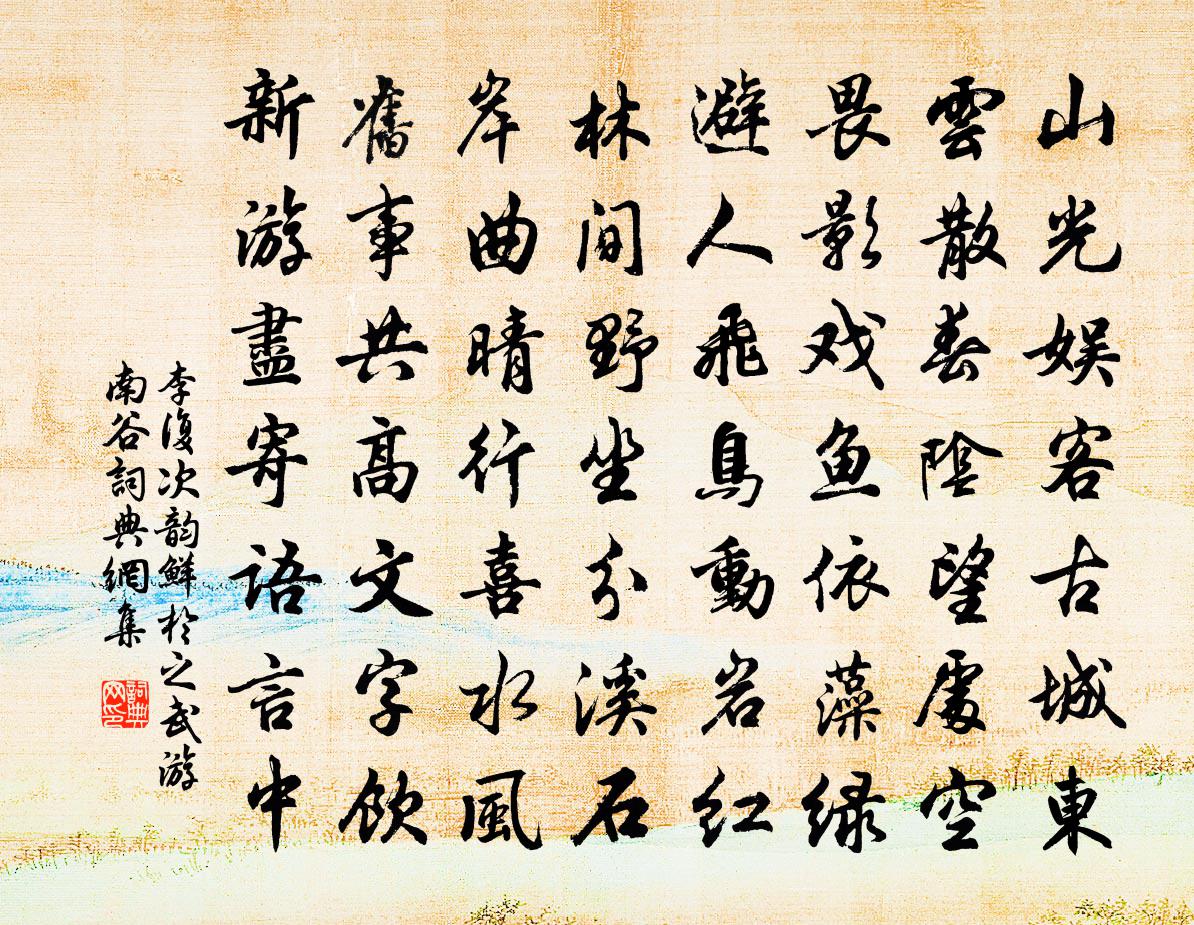 山光娛客古城東
雲散春陰望處空
畏影戏魚依藻綠
避人飛鳥動岩红
林間野坐分溪石
岸曲晴行喜水風
舊事共高文字飲
新游盡寄語言中
李復次韵鮮於之武游
南谷詞典網集
詞典
网印